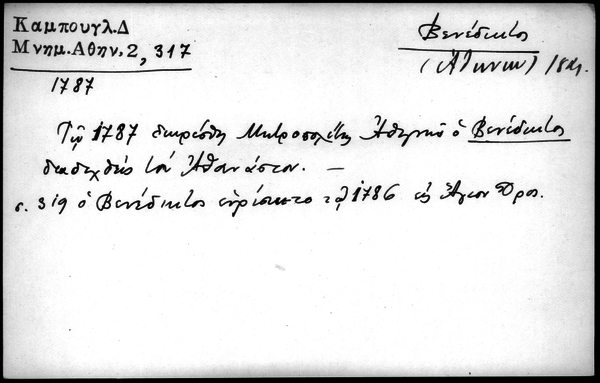 Καμπουγλ.Δ
Μνημ.Αθην.2, 317
1787
Βενέδικτος
(Ἀθηνῶν) 18ος.
Τῷ 1787 διῃρέθη Μητροπολίτης Ἀθηνῶν ὁ Βενέδικτος
διαδεχθεὶς τὸν Ἀθανάσιον. —
σ. 319 ὁ Βενέδικτος εὑρίσκετο τῷ 1786 εἰς Ἅγιον Ὄρος.